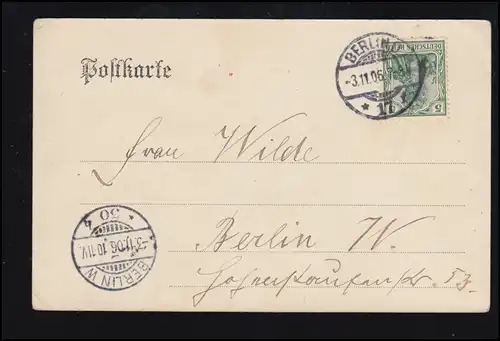 BERLIN
-3.11.06
* 17 *
DEUTSCHES REICH
5
Postkarte
Frau Wilde
Berlin W.
Hohenstaufenstr. 53
BERLIN W
-3.11.06. 10-11V.
* 30 *